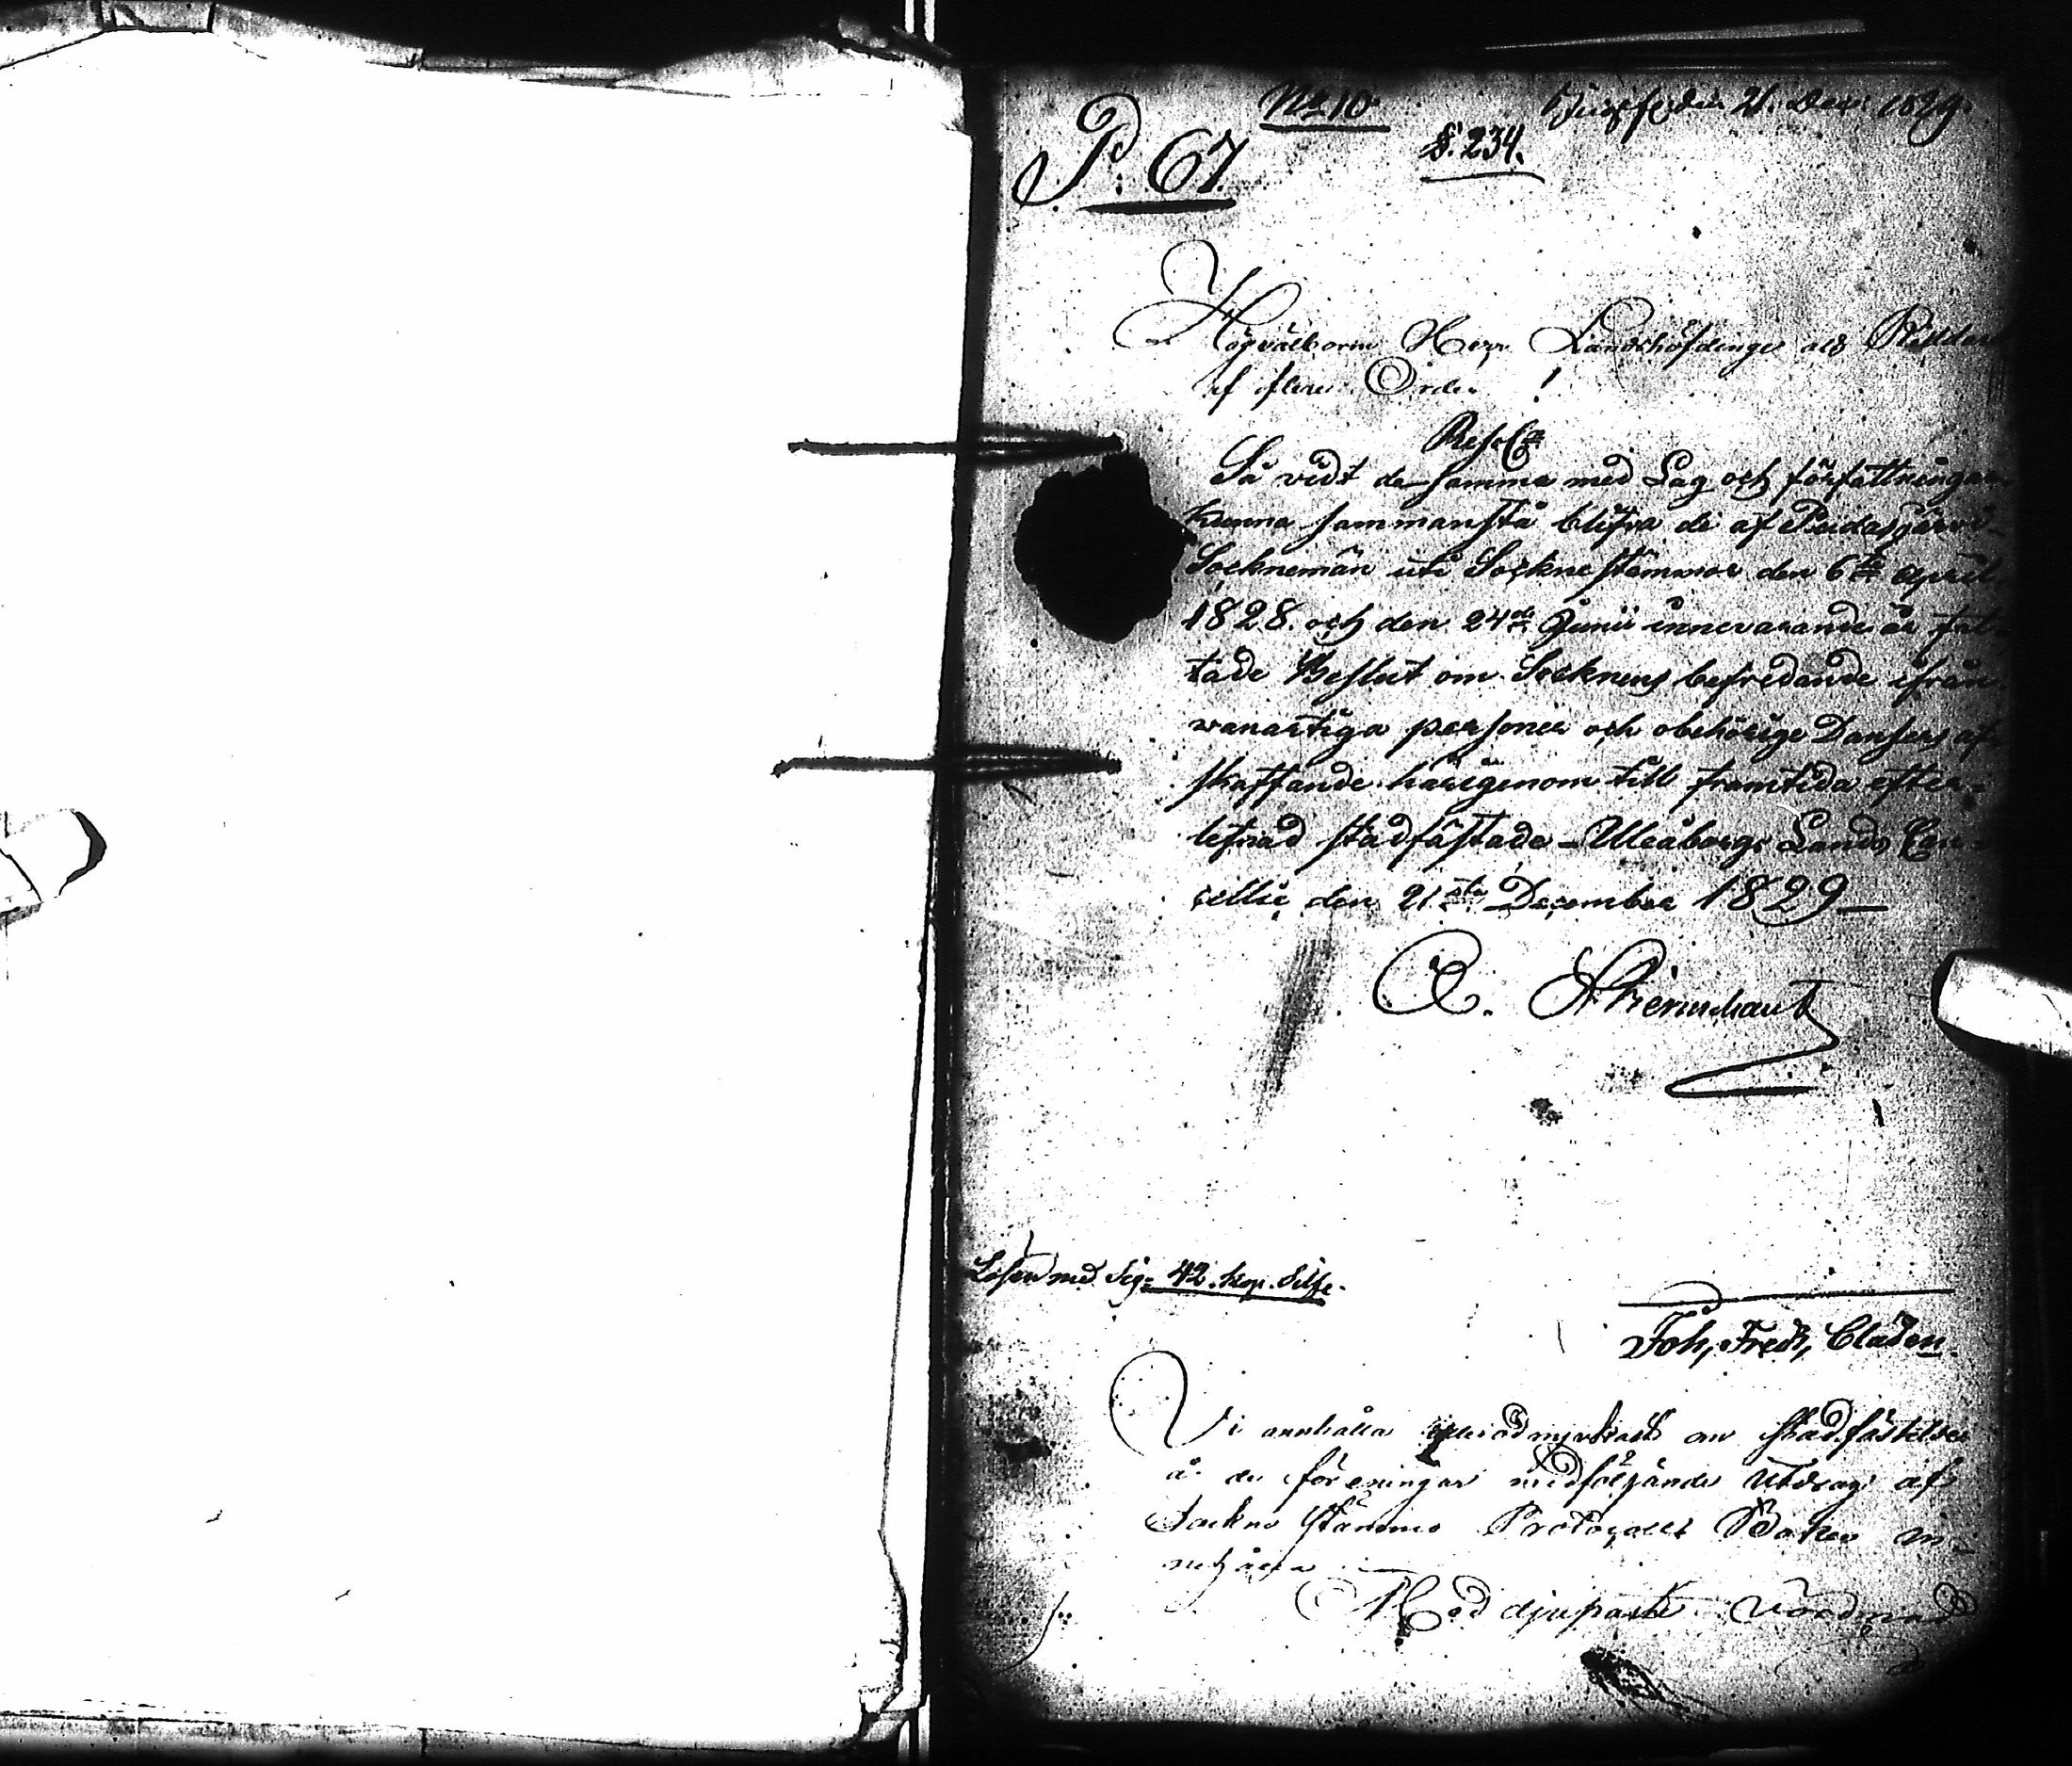 No 10.
den 21. Dec: 1829.
§. 234.
P. 67
Högvälborne Herr Landshöfdinge och Riddare
af flere Orden!
Resol:n
Så vidt de samma med Lag och författningar
kunna sammanstå blifva de af Pudasjervi
Socknemän uti Sockne stämmor den 6te April
1828. och den 24de Junii innevarande år fat-
tade Beslut om Socknens befredande ifrån
vanartiga personer och obehörige Dansers af-
skaffande härigenom till framtida efter-
lefnad stadfästade – Uleåborgs Lands Can-
cellie den 21sta December 1829 –
R. Stjernschantz
Lösen med Sig: 42. kop. Silfr.
Joh, Fredr, Claden.
Vi anhålla om Stadfästelse
å de föreningar medföljande utdrag af
Sockne Stämmo Protocolls Boken in-
nehålla
Med djupaste vördnad